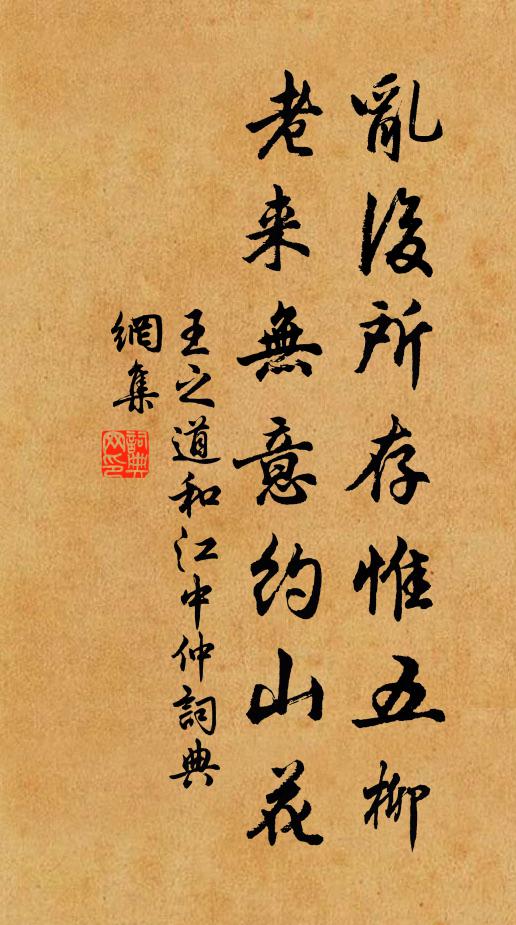 亂後所存惟五柳
老来無意約山花
王之道和江中仲詞典
網集
詞典
网印